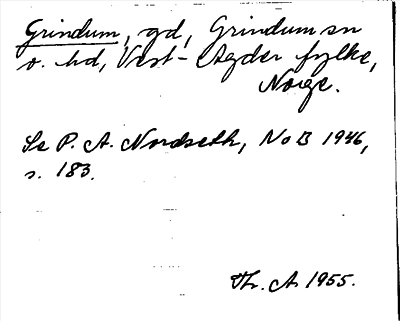 Grindum, gd, Grindum sn
o. hd, Vest-Agder fylke,
Norge.
Se P. A. Nordseth, NoB 1946,
s. 183.
Th. A. 1955.